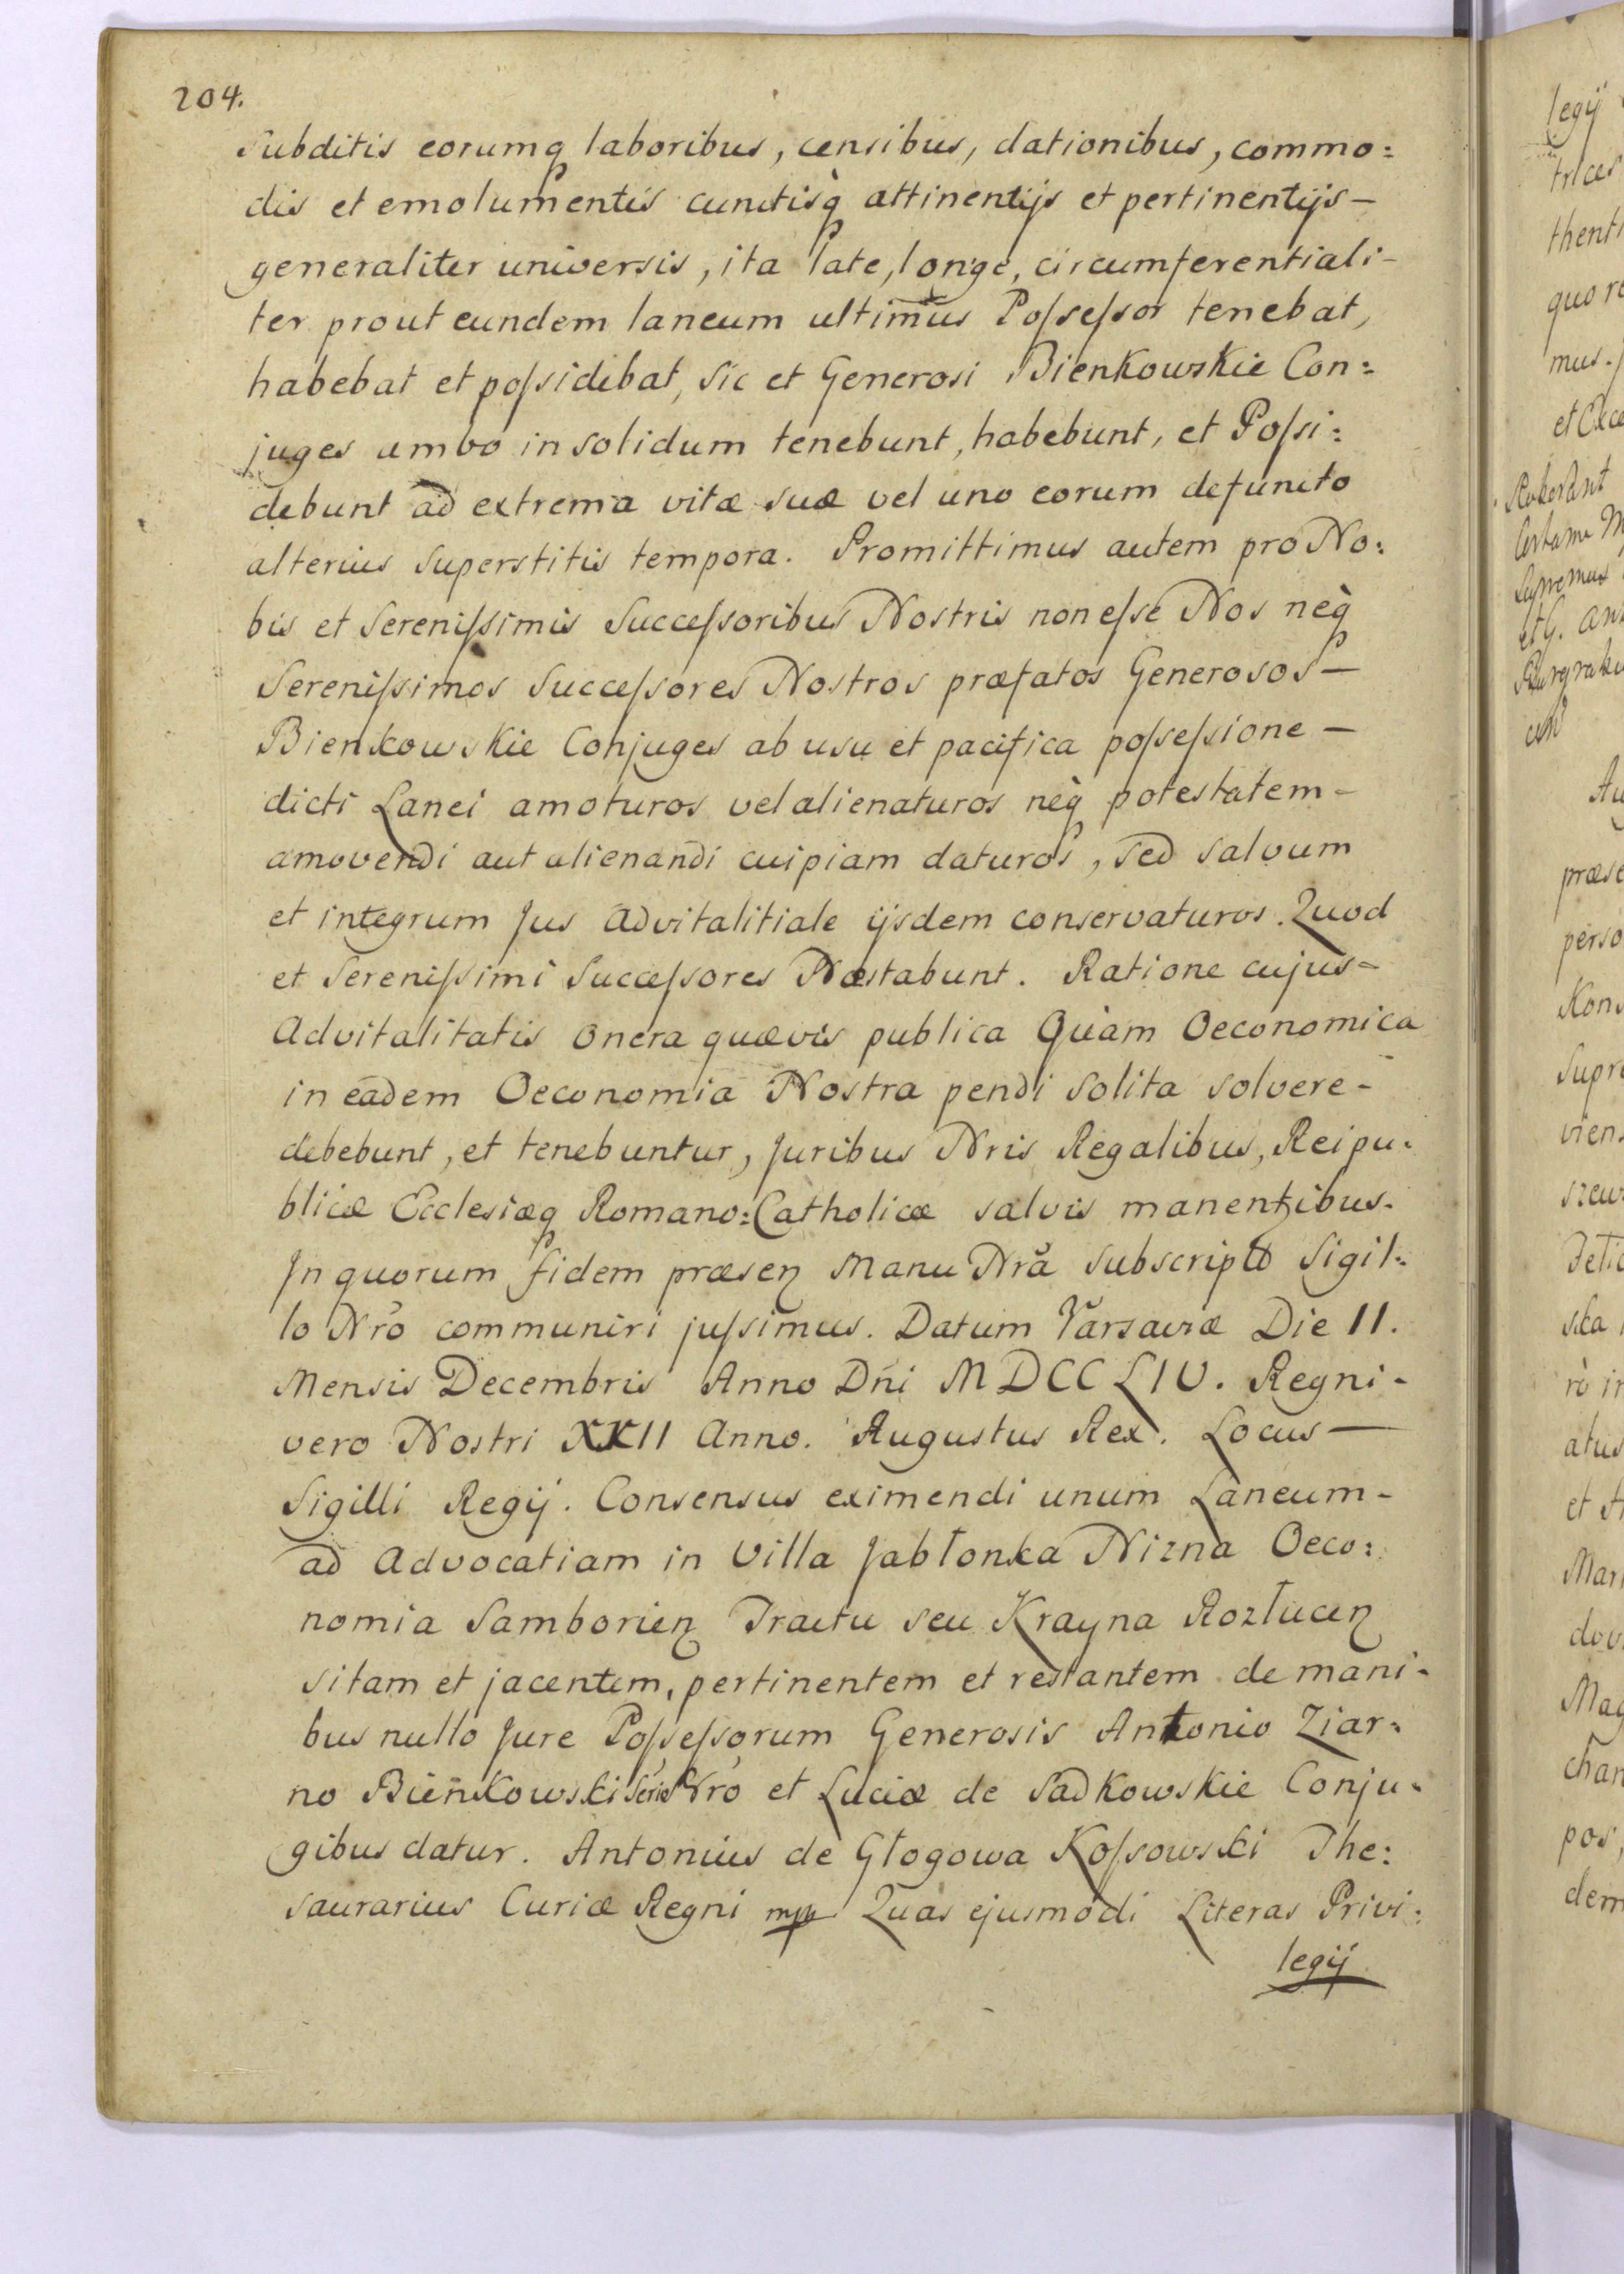 204.
Subditis eorumq laboribus, censibus, dationibus, commo:
dis et emolumentis cunctisq̀ attinentijs et pertinentijs —
generaliter universis, ita late, longe, circumferentiali-
ter prout eundem laneum ultimus Poſseſsor tenebat,
habebat et poſsidebat, sic et Generosi Bienkowskie Con:
juges ambo in solidum tenebunt, habebunt, et Poſsi:
debunt ad extrema vitæ suæ vel uno eorum defuncto
alterius Superstitis tempora. Promittimus autem pro No:
bis et Sereniſsimis Succeſsoribus Nostris non eſse Nos nèq
Sereniſsimos Succeſsores Nostros præfatos Generosos —
Bienkowskie Conjuges ab usu et pacifica poſseſsione —
dicti Lanei amoturos vel alienaturos nèq potestatem -
amovendi aut alienandi cuipiam daturos, sed salvum
et integrum Jus Advitalitiale ijsdem conservaturos. Quod
et Sereniſsimi Succeſsores Præstabunt. Ratione cujus -
Advitalitatis onera quævis publica Quàm Oeconomica
in eadem Oeconomia Nostra pendi solita solvere -
debebunt, et tenebuntur, Juribus Nris Regalibus, Reipu:
blicæ Ecclesiæq Romano: Catholicæ salvis manentibus.
In quorum fidem præsen Manu Nrã subscripto Sigil:
lo Nrõ communiri juſsimus. Datum Varsaviæ Die 11.
Mensis Decembris Anno Dni MDCCLIV. Regni -
vero Nostri XXII Anno. Augustus Rex. Locus —
Sigilli Regij. Consensus eximendi unum Laneum -
ad Advocatiam in Villa Jabłonka Nizna Oeco:
nomia Samborien Tractu seu Krayna Rozłucen
sitam et jacentem, pertinentem et restantem de mani -
bus nullo Jure Poſseſsorum Generosis Antonio Ziar:
no Bieńkowski Serio Nrõ et Luciæ de Sadkowskie Conju -
gibus datur. Antonius de Głogowa Koſsowski The:
saurarius Curiæ Regni mpp Quas ejusmodi Literas Privi:
legij